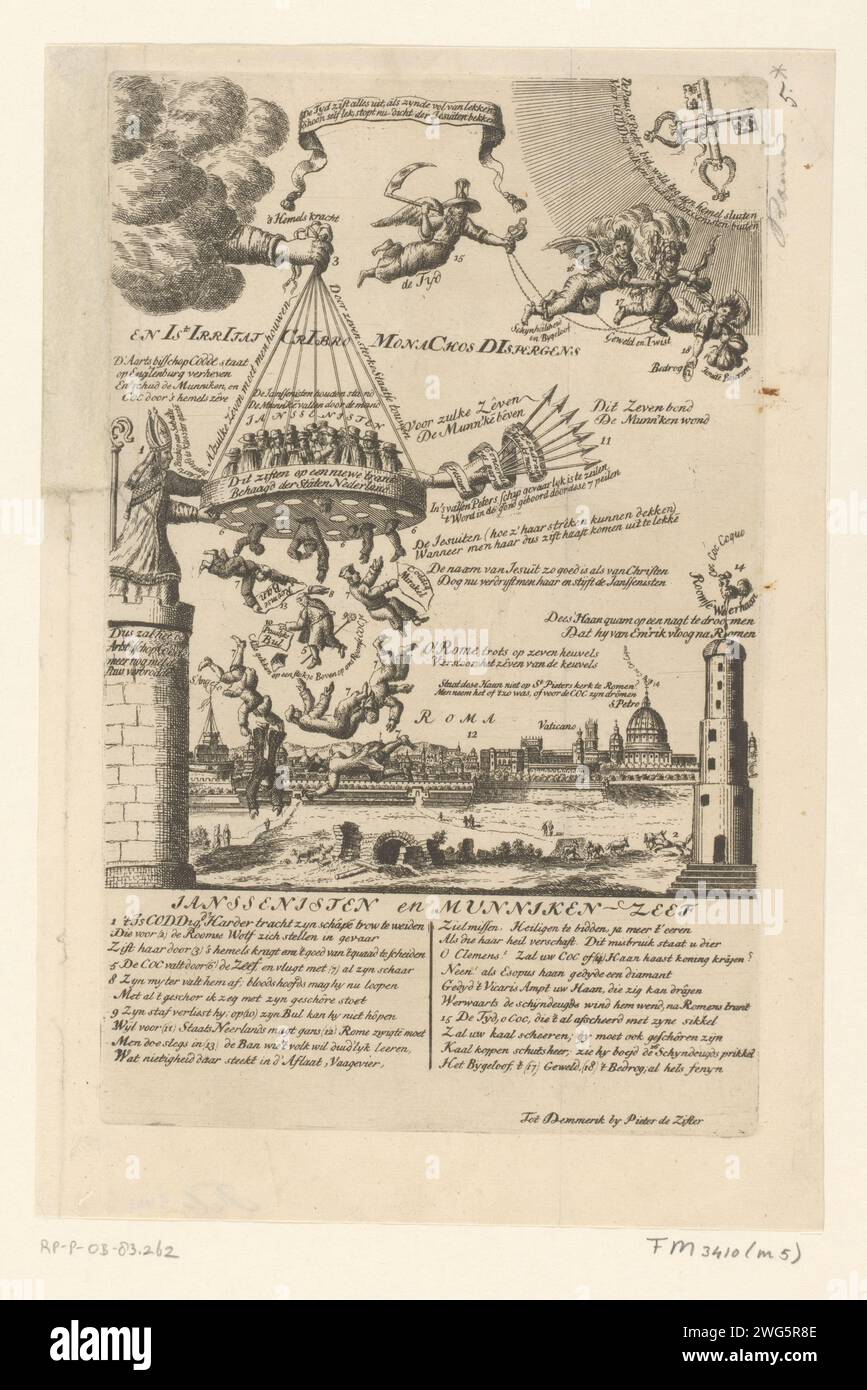 De Tyd zift alles uit, als zynde vol van lekken
Schoon self lek, stopt nu dicht der Jesuiten bekken
5.*
's Hemels kracht
3
15
de Tyd
16
Schynheiligheid en Bygeloof
17
Geweld en Twist
18
Bedrog
EN Ist IRRITAT CRIBRO MONACHOS DISPERGENS
D'Aartsbisschop Codde staat
op Englenburg verheven
En schud de Munniken, en
COC door 's hemels zêve
Door zeven sterke Staatse touwen
Al zulke Zêven moed men houwen
De Janssenisten houden stand
De Munnikê vallen door de mand
JANSSENISTEN
Voor zulke Zêven
De Munn'kê bêven
Dit Zeven bond
De Munn'ken wond
11
1
Dit ziften op een niewe trant
Behaagd der Staten Nederland
In's vallen Peters schip gevaarlyk is te zeilen
't Word in de gond geboord door dese 7 peilen
6
6
De Jesuiten (hoe z'haar strêken kunnen dekken)
Wanneer men haar dus zift haast komen uit te lekkê
De naam van Jesuit zo goed is als van Christen
Dog nu verdryft men haar en styft de Janssenisten
Coc Coc Coquo
14
Roomse Weerhaan
7
13
8
10
Pauselyke
Bul
9
5
7
Dees Haan quam op een nagt te droomen
Dat hy van Em'rik vloog na Roomen
O! Rome, trots op zeven heuvels
Verstoor het zêven van de keuvels
Staat dese Haan niet op St Pieters kerk te Romen
Men neem het of t zo was, of voor de COC zyn drômen
14
S. Petro
S. Angelo
7
7
ROMA
12
Vaticano
7
2
JANSSENISTEN en MUNNIKEN-ZEEF
1 't Is CODDig, d' Harder tracht zyn schâpê trow te weiden
Die voor (2) de Roomse Wolf zich stellen in gevaar
Zift haar door (3) 's hemels kragt em t goed van t quaad te scheiden
5 De COC valt door (6) de Zeef, en vlugt met (7) al zyn schaar
8 Zyn myter valt hem af: bloodshoofds mag hy nu loopen
Met al t geschor ik zeg met zyn geschôre stoet
9 Zyn staf verliest hy, op (10) zyn Bul kan hy niet hôpen
Wyl voor (11) Staats Neerlands magt gans (12) Rome zwigtê moet
Men doe slegs in (13) de Ban wie 't volk wil duidlyk leeren,
Wat nietigheid daar steekt in d'Aflaat, Vaagevier,
Zielmissen, Heiligen te bidden, ja meer t' eeren
Als die haar heil verschaft. Dit misbruik staat u dier
O Clemens! Zal uw COC of (14) Haan haast koning krâjen?
Neen! als Esopus haan gedyde een diamant
Gedyd 't Vicaris Ampt uw Haan, die zig kan drâjen
Werwaarts de schyndeugds wind hem wend, na Romens trant
15 De Tyd, o Coc, die 't al afscheerd met zyne sikkel
Zal uw kaal scheeren; gy moet ook geschôren zyn
Kaal koppen schutsheer, zie hy boejd de (16) Schyndeugds prikkel
Het Bygeloof, t (17) Geweld, (18) 't Bedrog, al hels fenyn
Tot Demmerik by Pieter de Zifter
RP-P-OB-83.262
FM 3410 (m 5)
alamy
Image ID: 2WG5R8E
www.alamy.com